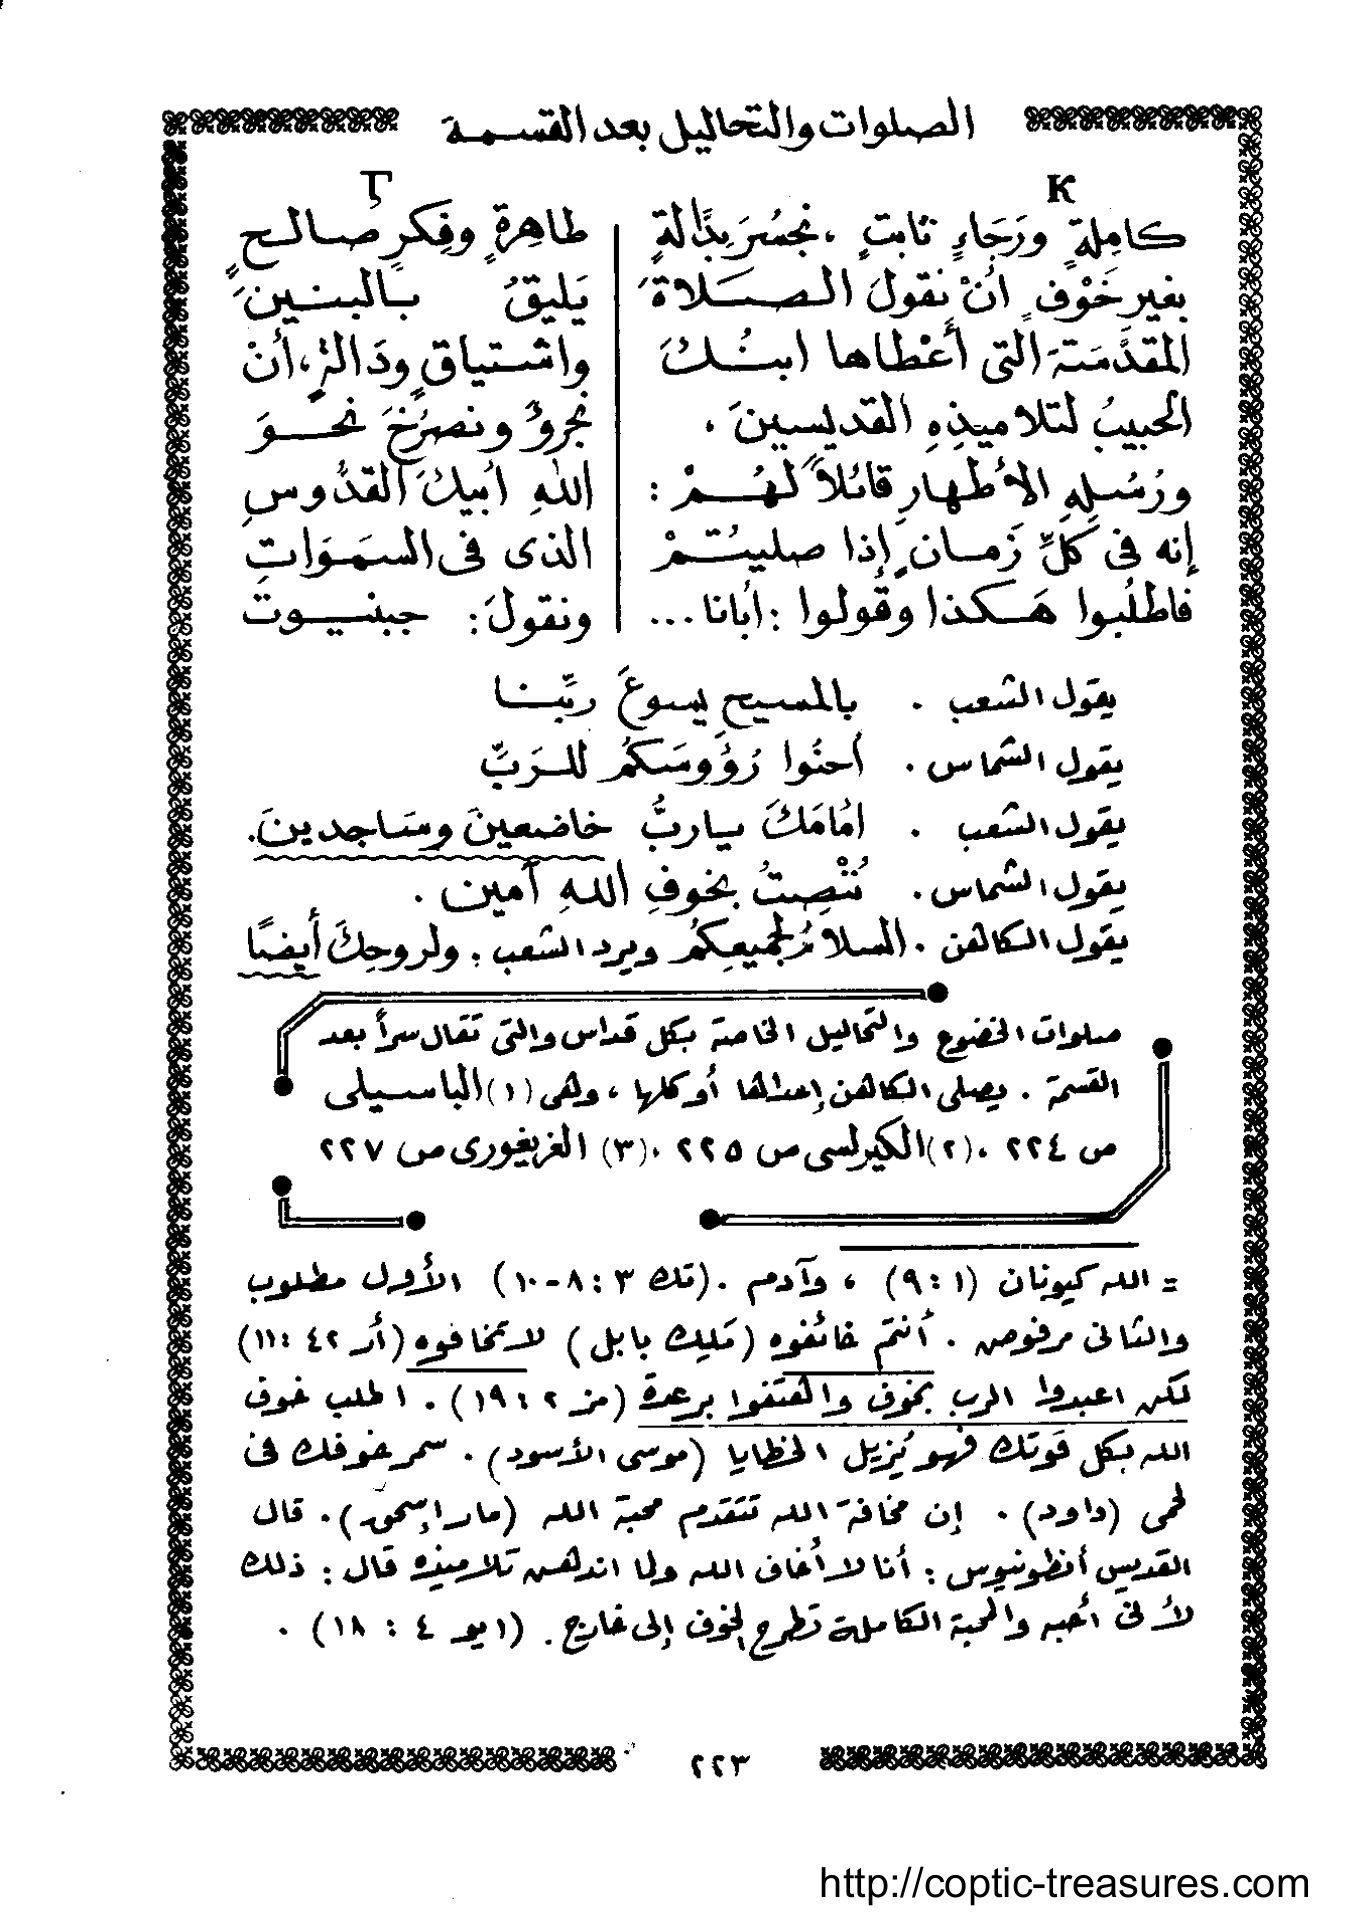 الصلوات والتحاليل بعد القسمة
K
كامِلةٍ ورَجَاءٍ ثابتٍ ، نجسُرَ بِدَالَّةٍ
بغيرِ خَوْفٍ أنْ نقولَ الصَلاةَ
المقدَّسَةَ التى أَعْطاها ابنُكَ
الحبيبُ لتلاميذِهِ القديسينَ ،
ورُسُلِهِ الأطهارِ قائلاً لَهُمْ :
إنه فى كلِّ زَمانٍ إذا صليتُمْ
فاطلُبوا هَكذا وقُولوا : أبانا ...
Ⲅ
طاهِرةٍ وفِكرٍ صالحٍ
يَليقُ بالبنينَ
واشتياقٍ ودَالةٍ، أنْ
نجرؤَ ونصرُخَ نحوَ
اللهِ أبيكَ القدُّوسِ
الذى فى السمَوَاتِ
ونقولَ : جبنيوت
يقول الشعب . بالمسيحِ يسوعَ ربِّنا
يقول الشماس . أحنُوا رُؤُوسَكُم للرَبِّ
يقول الشعب . أمامَكَ يـاربُّ خاضعينَ وسَاجدينَ.
يقول الشماس . نُنْصِتُ بخوفِ اللهِ آمين .
يقول الكاهن . السلامُ لجميعِكُم ويرد الشعب : ولروحِكَ أيضًا
صلوات الخضوع والتحاليل الخاصة بكل قداس والتى تقال سراً بعد
القسمة . يصلى الكاهن إحداها أو كلها ، وهى (١) الباسيلى
ص ٢٢٤ ، (٢) الكيرلسى ص ٢٢٥ ، (٣) الغريغورى ص ٢٢٧
= الله كيونان (١ : ٩) ، وآدم . (تك ٣ : ٨-١٠) الأول مطلوب
والثانى مرفوض . أنتم خائفوه (مَلِك بابل) لا تخافوه (أر ٤٢ : ١١)
لكن اعبدوا الرب بخوف والهتفوا برعدة (مز ٢ : ١٩) . اطلب خوف
الله بكل قوتك فهو يُزيل الخطايا (موسى الأسود) . سمر خوفك فى
لحمى (داود) . إن مخافة الله تتقدم محبة الله (مار إسحق) . قال
القديس أنطونيوس : أنا لا أخاف الله ولما اندهش تلاميذه قال : ذلك
لأنى أحبه والمحبة الكاملة تطرح الخوف إلى خارج . (١ يو ٤ : ١٨) .
٢٢٣
http://coptic-treasures.com